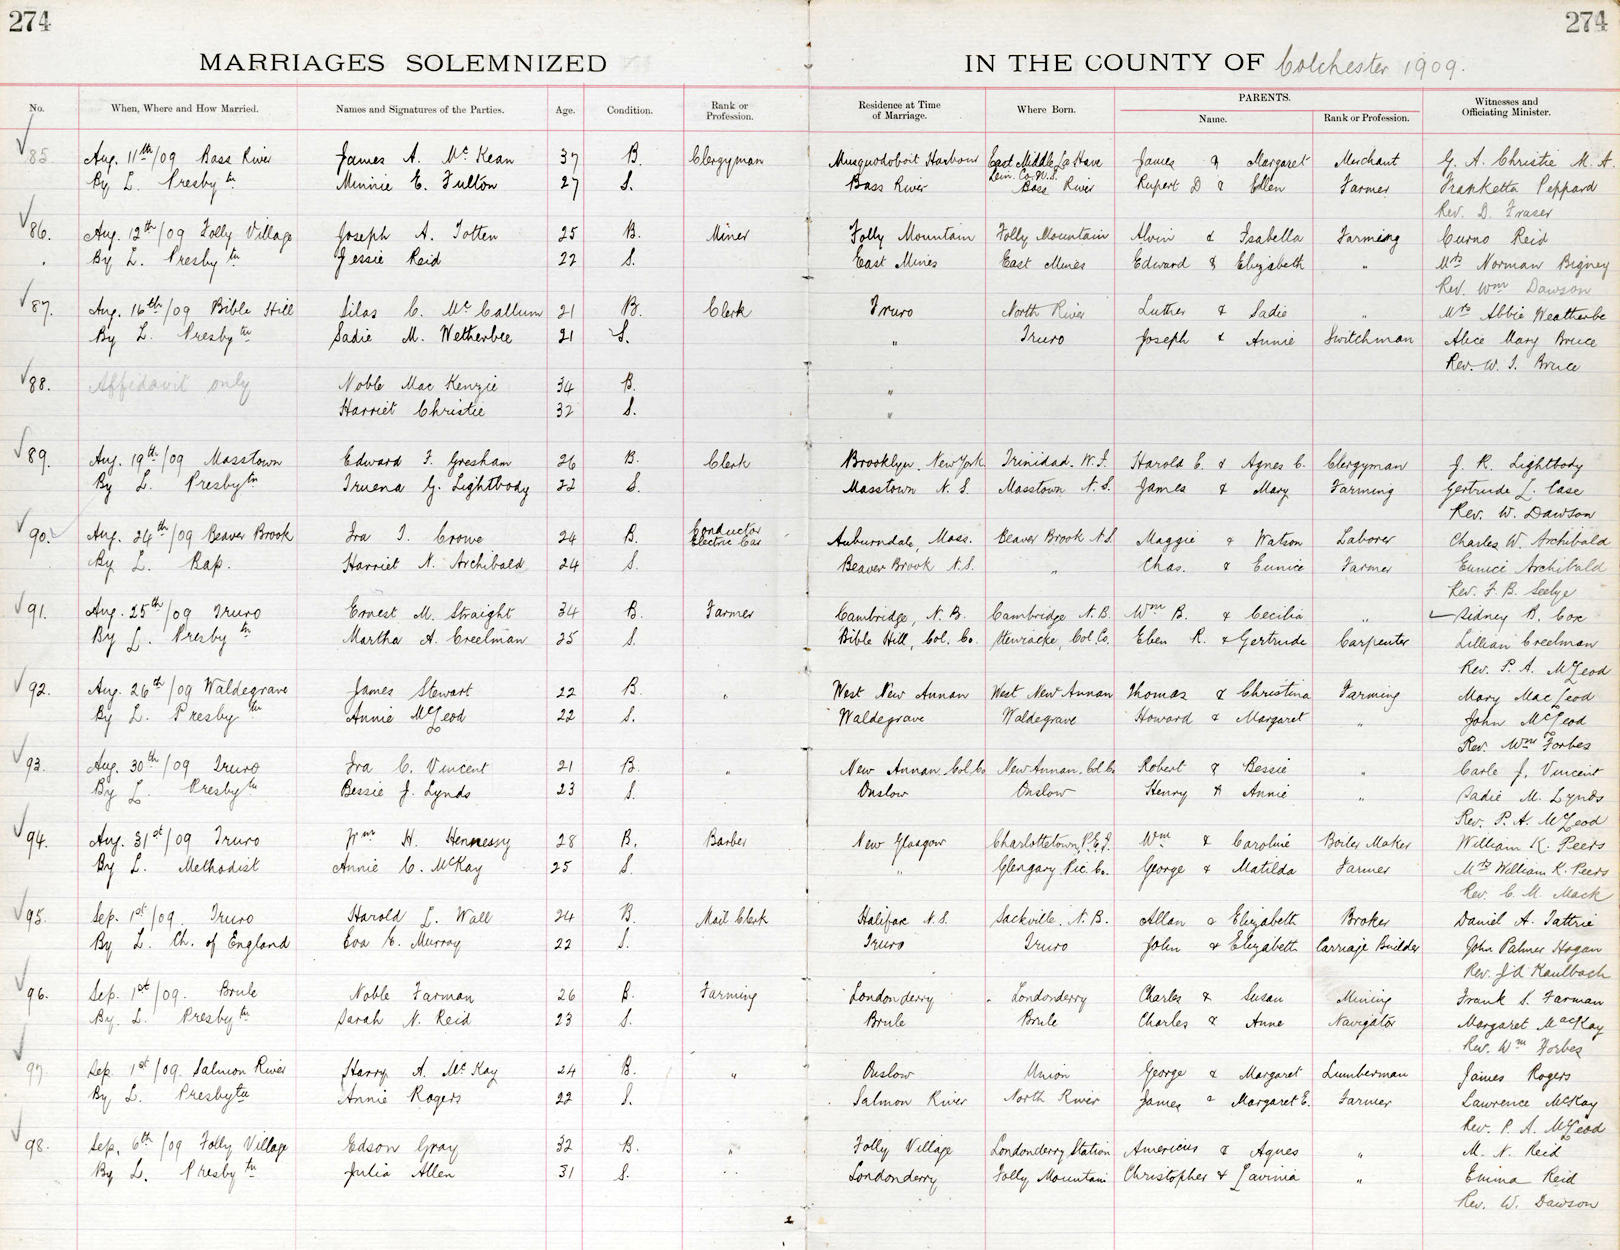 274
274
MARRIAGES SOLEMNIZED
IN THE COUNTY OF Colchester 1909.
No. When, Where and How Married. Names and Signatures of the Parties. Age. Condition. Rank or Profession. Residence at Time of Marriage. Where Born. PARENTS. Name. Rank or Profession. Witnesses and Officiating Minister.
85. Aug. 11th/09 Bass River James A. McKean 37 B. Clergyman Musquodoboit Harbour East Middle La Have Lun. Co. N.S. James & Margaret Merchant G. A. Christie M. A.
By L. Presbytn Minnie E. Fulton 27 S. Bass River Bass River Rupert D & Ellen Farmer Franketta Peppard
Rev. D. Fraser
86. Aug. 12th/09 Folly Village Joseph A. Totten 25 B. Miner Folly Mountain Folly Mountain Alvin & Isabella Farming Curno Reid
By L. Presbytn Jessie Reid 22 S. East Mines East Mines Edward & Elizabeth " Mrs Norman Bigney
Rev. Wm Dawson
87. Aug. 16th/09 Bible Hill Silas C. McCallum 21 B. Clerk Truro North River Luther & Sadie " Mrs Abbie Weatherbe
By L. Presbytn Sadie M. Wetherbee 21 S. " Truro Joseph & Annie Switchman Alice Mary Bruce
Rev. W. T. Bruce
88. Affidavit only Noble MacKenzie 34 B. "
Harriet Christie 32 S. "
89. Aug. 19th/09 Masstown Edward F. Gresham 26 B. Clerk Brooklyn, New York Trinidad. W. I. Harold E. & Agnes C. Clergyman J. R. Lightbody
By L. Presbytn Truena G. Lightbody 22 S. Masstown N. S. Masstown N. S. James & Mary Farming Gertrude L. Case
Rev. W. Dawson
90. Aug. 24th/09 Beaver Brook Ira T. Crowe 24 B. Conductor Electric Car Auburndale, Mass. Beaver Brook N.S. Maggie & Watson Laborer Charles W. Archibald
By L. Bap. Harriet N. Archibald 24 S. Beaver Brook N.S. " Chas. & Eunice Farmer Eunice Archibald
Rev. F. B. Seelye
91. Aug. 25th/09 Truro Ernest M. Straight 34 B. Farmer Cambridge, N. B. Cambridge N. B. Wm B. & Cecilia " Sidney B. Cox
By L. Presbytn Martha A. Creelman 25 S. Bible Hill, Col. Co. Col Co. Eben R. & Gertrude Carpenter Lillian Creelman
Rev. P. A. McLeod
92. Aug. 26th/09 Waldegrave James Stewart 22 B. " West New Annan West New Annan Thomas & Christina Farming Mary MacLeod
By L. Presbytn Annie McLeod 22 S. Waldegrave Waldegrave Howard & Margaret " John McLeod
Rev. Wm Forbes
93. Aug. 30th/09 Truro Ira C. Vincent 21 B. " New Annan. Col. Co New Annan. Col. Co Robert & Bessie " Carle J. Vincent
By L. Presbytn Bessie J. Lynds 23 S. Onslow Onslow Henry & Annie " Sadie M. Lynds
Rev. P. A. McLeod
94. Aug. 31st/09 Truro Wm H. Hennessy 28 B. Barber New Glasgow Charlottetown, P.E.I. Wm & Caroline Boiler Maker William K. Peers
By L. Methodist Annie C. McKay 25 S. " Glengary Pic. Co. George & Matilda Farmer Mrs William K. Peers
Rev. C. M. Mack
95. Sep. 1st/09. Truro Harold L. Wall 24 B. Mail Clerk Halifax N.S. Sackville. N. B. Allan & Elizabeth Broker Daniel A. Tattrie
By L. Ch. of England Eva E. Murray 22 S. Truro Truro John & Elizabeth Carriage Builder John Palmer Hogan
Rev. J A Kaulbach
96. Sep. 1st/09. Brule Noble Farman 26 B. Farming Londonderry Londonderry Charles & Susan Mining Frank S. Farman
By. L. Presbytn Sarah N. Reid 23 S. Brule Brule Charles & Anne Navigator Margaret MacKay
Rev. Wm Forbes
97. Sep. 1st/09. Salmon River Harry A. McKay 24 B. " Onslow Union George & Margaret Lumberman James Rogers
By L. Presbytn Annie Rogers 22 S. Salmon River North River James & Margaret E. Farmer Lawrence McKay
Rev. P. A. McLeod
98. Sep. 6th/09 Folly Village Edson Gray 32 B. " Folly Village Londonderry Station Americus & Agnes " M. N. Reid
By L. Presbytn Julia Allen 31 S. Londonderry Folly Mountain Christopher & Lavinia " Emma Reid
Rev. W. Dawson